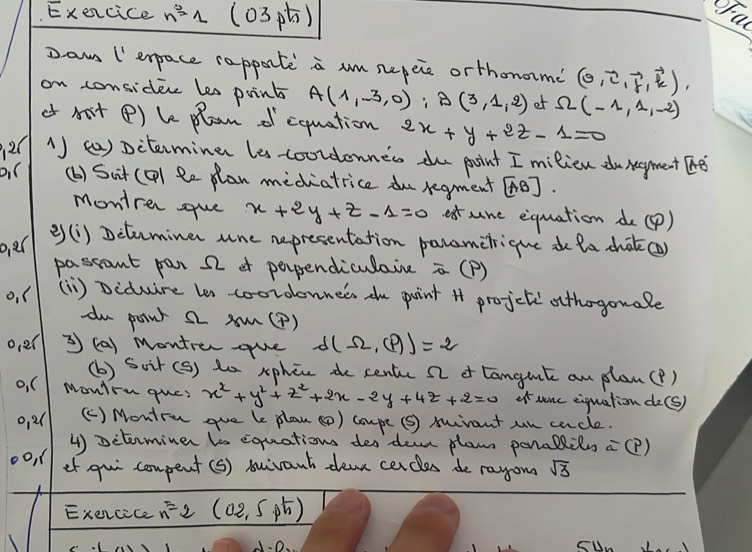 Exercice n°1 (03 pts)
Dans l'espace rapporté à un repère orthonormé (o, i, j, k),
on considère les points A(1,-3,0) ; B(3,1,2) et Ω(-1,1,-2)
et soit (P) le plan d'équation 2x+y+2z-1=0
0,25 1) (a) Déterminer les coordonnées du point I milieu du segment [AB]
0,5 (b) Soit (Q) le plan médiatrice du segment [AB].
Montrer que x+2y+z-1=0 est une équation de (Q)
0,25 2) (i) Déterminer une représentation paramétrique de la droite (D)
passant par Ω et perpendiculaire à (P)
0,5 (ii) Déduire les coordonnées du point H projeté orthogonale
du point Ω sur (P)
0,25 3) (a) Montrer que d(Ω,(P)) = 2
(b) Soit (S) la sphère de centre Ω et tangente au plan (P)
0,5 Montrer que: x²+y²+z²+2x-2y+4z+2=0 est une équation de (S)
0,25 (c) Montrer que le plan (Q) coupe (S) suivant un cercle.
4) Déterminer les équations des deux plans parallèles à (P)
0,5 et qui coupent (S) suivant deux cercles de rayons √3
Exercice n°2 (02,5 pts)